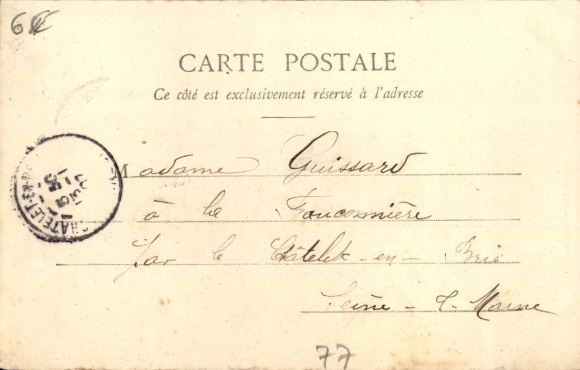 CARTE POSTALE
Ce côté est exclusivement réservé à l'adresse
Madame Guissard
à la Fauconnière
Par le Châtelet-en-Brie
Seine-&-Marne
77
CHATELET-EN-